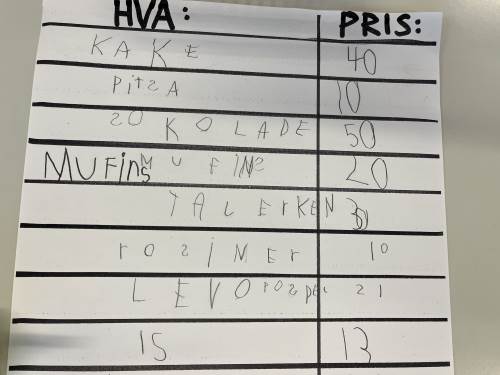 HVA: PRIS:
KAKE 40
PITSA 10
SOKOLADE 50
MUFinS MUFINS 20
TALErKEN 30
rOSiNEr 10
LEVOPOSDEr 21
iS 13